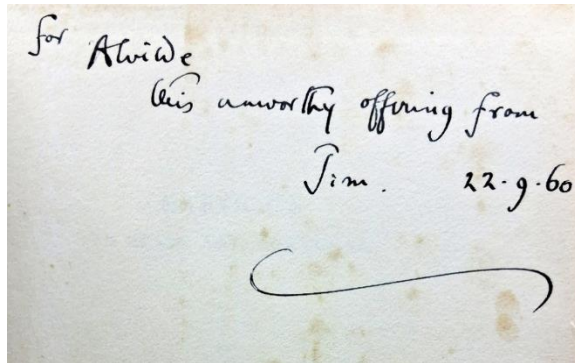 for Alvilde
this unworthy offering from
Jim. 22·9·60